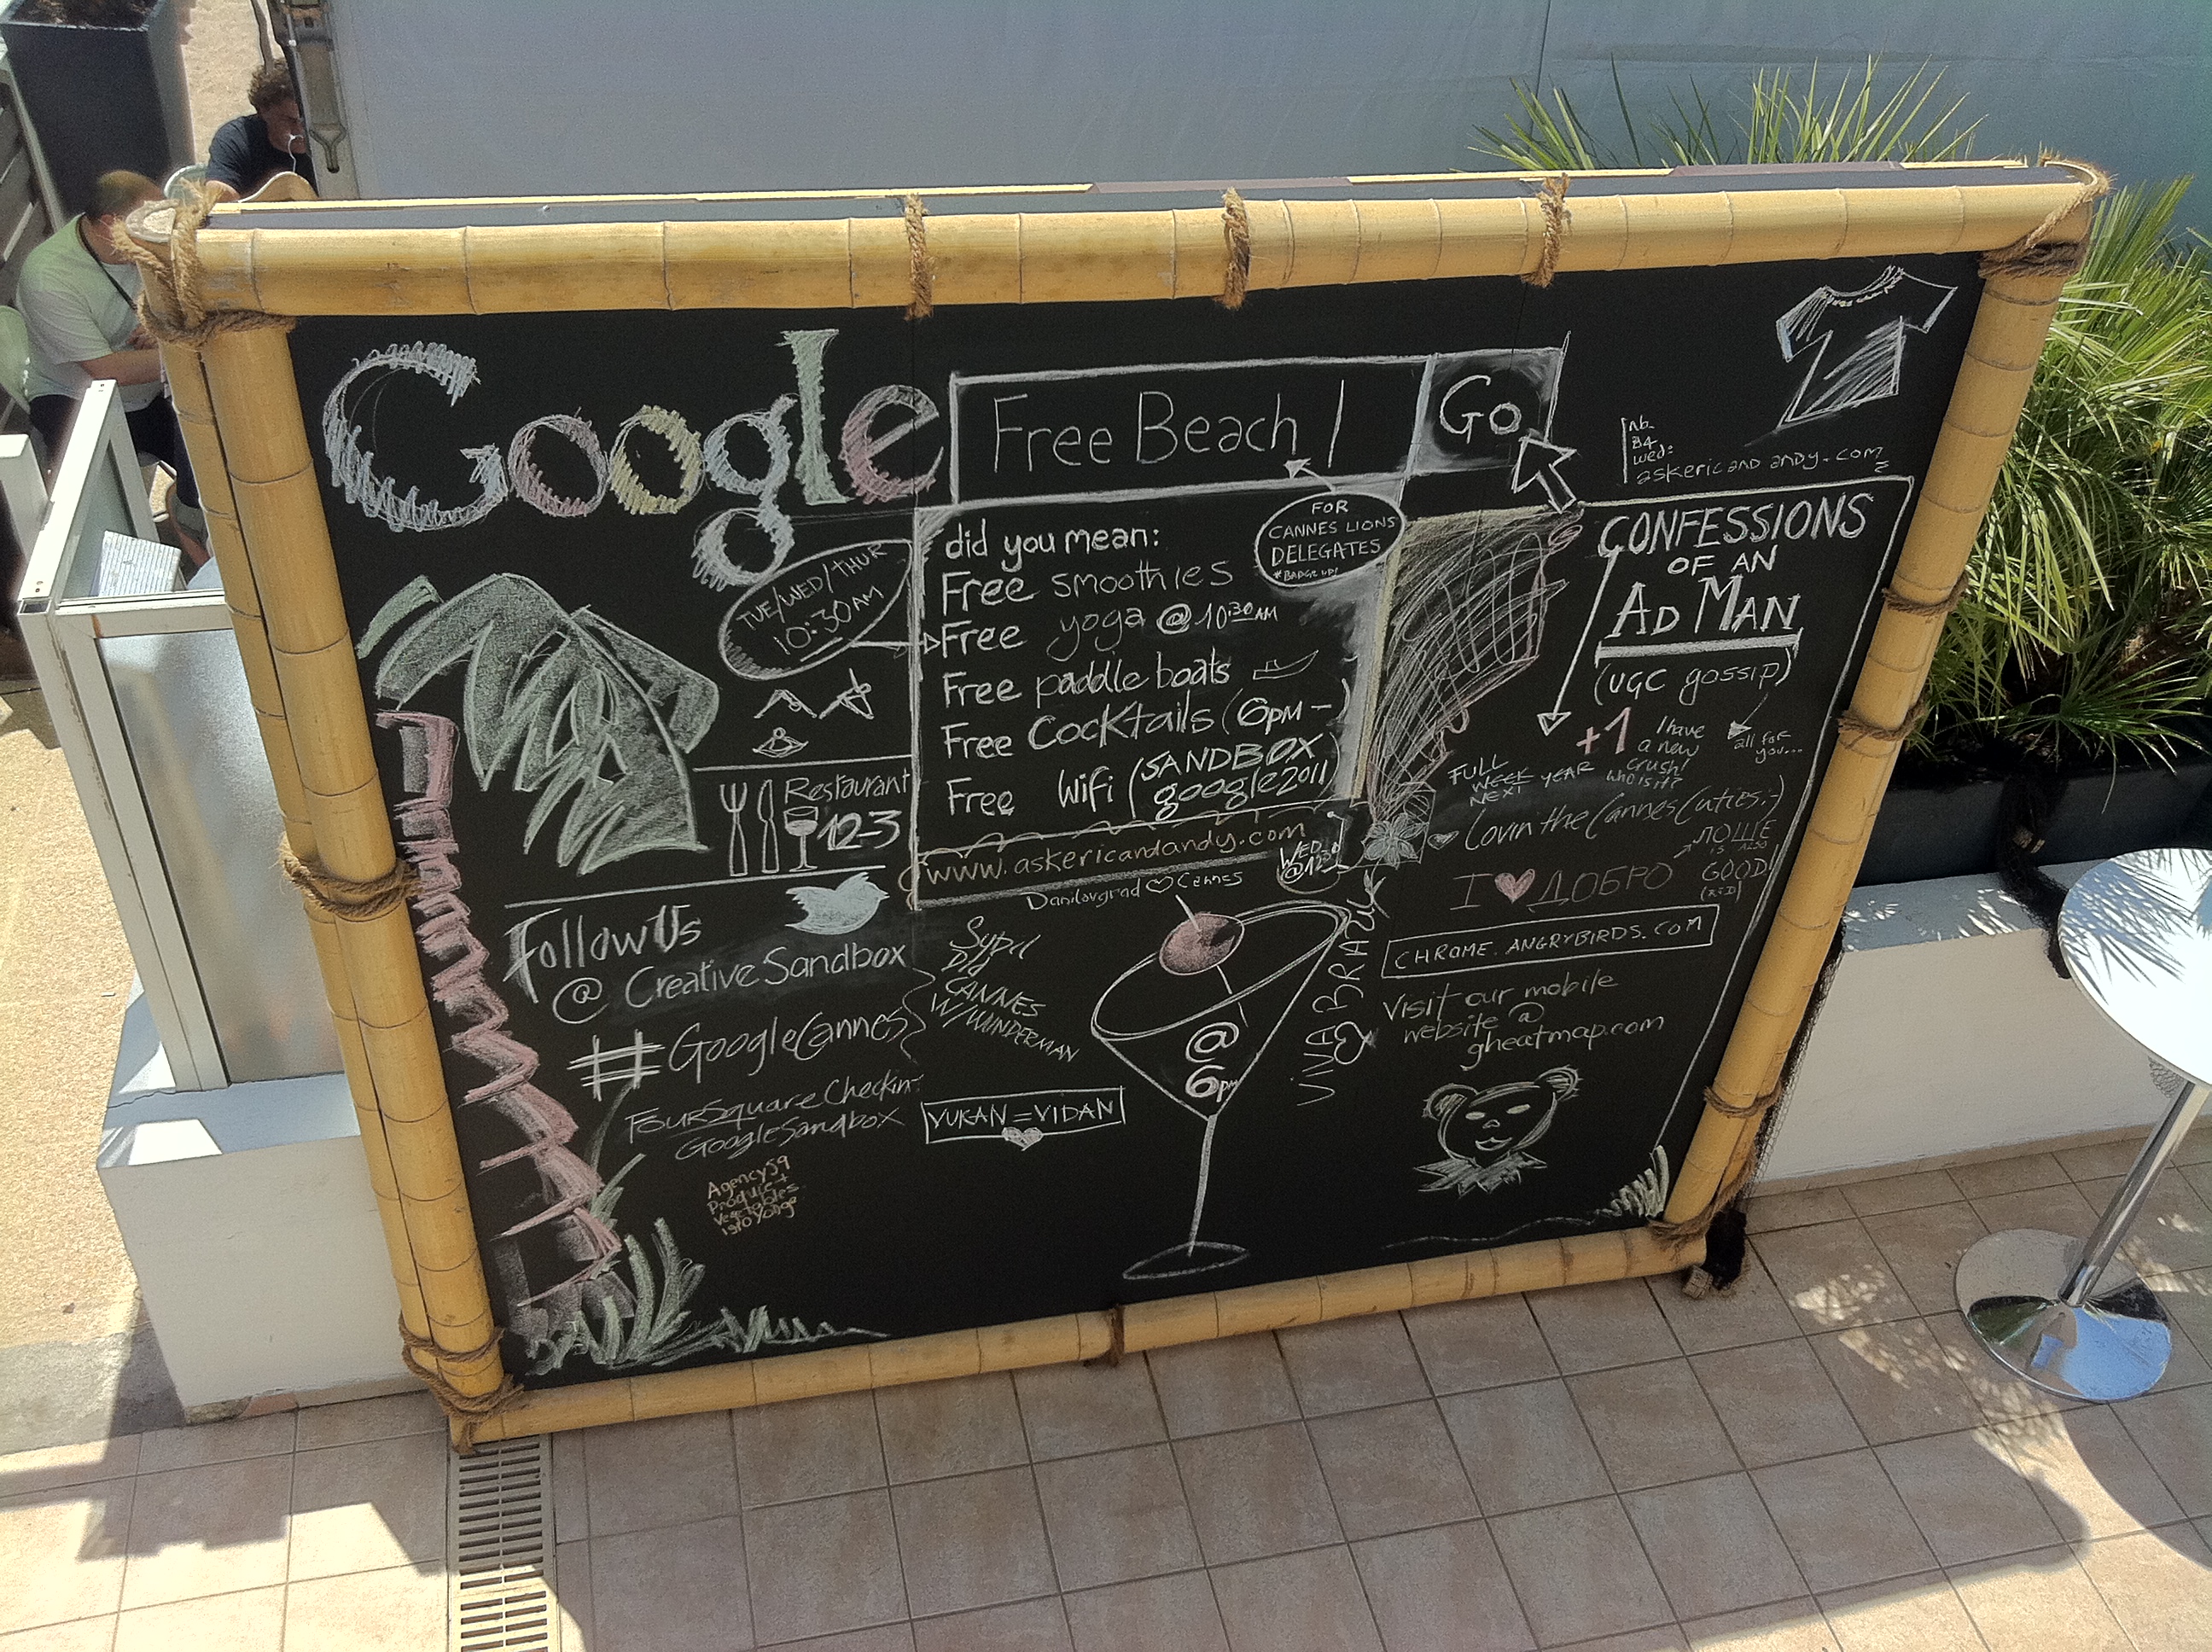 Google
Free Beach
Go
nb.
B4
Wed:
askericandandy.com
FOR
CANNES LIONS
DELEGATES
*BADGE UP!
did you mean:
Free smoothies
Free yoga @ 10:30AM
Free paddle boats
Free Cocktails (6PM-
Free Wifi (SANDBOX
google2011)
www.askericandandy.com
WED
Danilovgrad ♡ Cannes
TUE/WED/THUR
10:30AM
Restaurant
12-3
Follow Us
@ Creative Sandbox
#GoogleCannes
FourSquare Checkin:
GoogleSandbox
Agency59
Vegetables
Sypd
Did
CANNES
W/WUNDERMAN
YUKAN = YIDAN
@
6pm
VIVA
CONFESSIONS
OF AN
AD MAN
(UGC gossip)
+1
I have
a new
crush!
who is it?
all for
you...
FULL
WEEK
NEXT YEAR
Lovin the Cannes Cuties :-)
I ♥ ДОБРО
ЛОШЕ
IS ALSO
GOOD
CHROME.ANGRYBIRDS.COM
Visit our mobile
website @
gheatmap.com